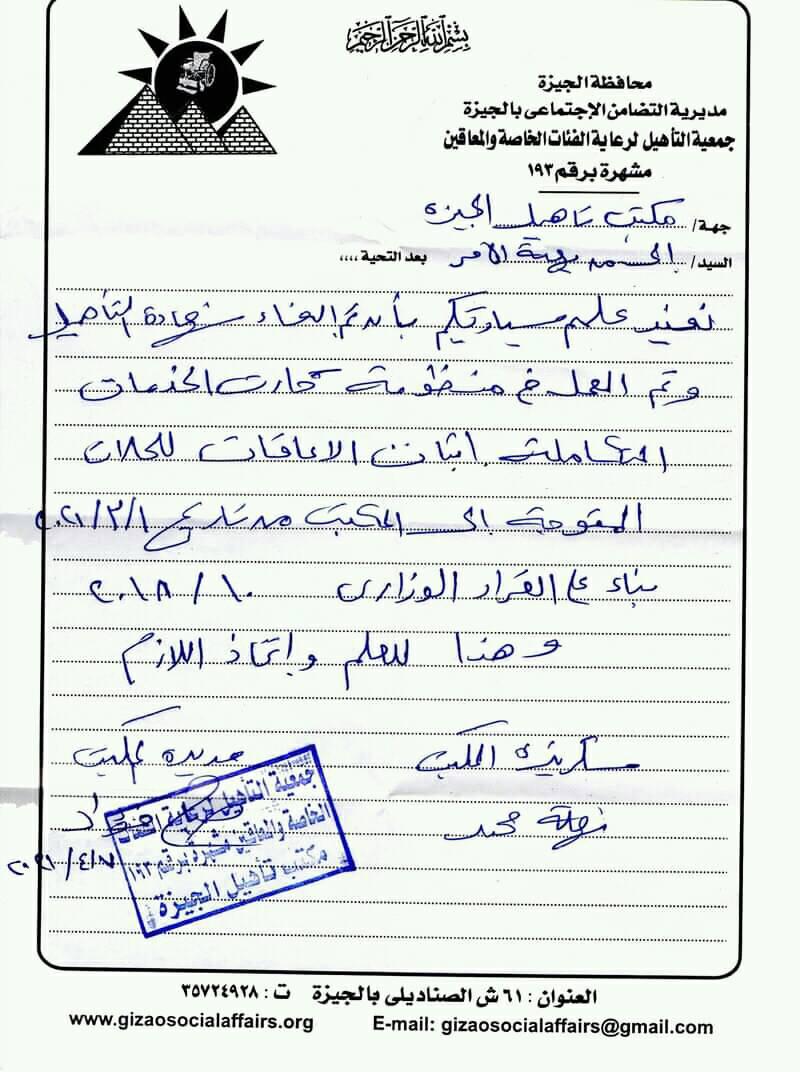 بسم الله الرحمن الرحيم
محافظة الجيزة
مديرية التضامن الإجتماعى بالجيزة
جمعية التأهيل لرعاية الفئات الخاصة والمعاقين
مشهرة برقم ١٩٣
جهة/ مكتب تأهيل الجيزة
السيد/ الى من يهمه الأمر بعد التحية ،،،،
نفيد علم سيادتكم بأنه تم الغاء شهادة التأهيل
وتم العمل فى منظومة كارت الخدمات
المتكاملة اثبات الاعاقات للحالات
المتوجة الى المكتب من تاريخ ٢٠٢١/٣/١
بناء على القرار الوزارى ١٠ / ٢٠١٨
وهذا للعلم وإتخاذ اللازم
سكرتيرة المكتب مديرة المكتب
نهلة محمد
٢٠٢١/٤/٧
جمعية التأهيل لرعاية الفئات
الخاصة والمعاقين مشهرة برقم ١٩٣
مكتب تأهيل الجيزة
العنوان : ٦١ ش الصناديلى بالجيزة ت : ٣٥٧٢٤٩٢٨
www.gizaosocialaffairs.org E-mail: gizaosocialaffairs@gmail.com